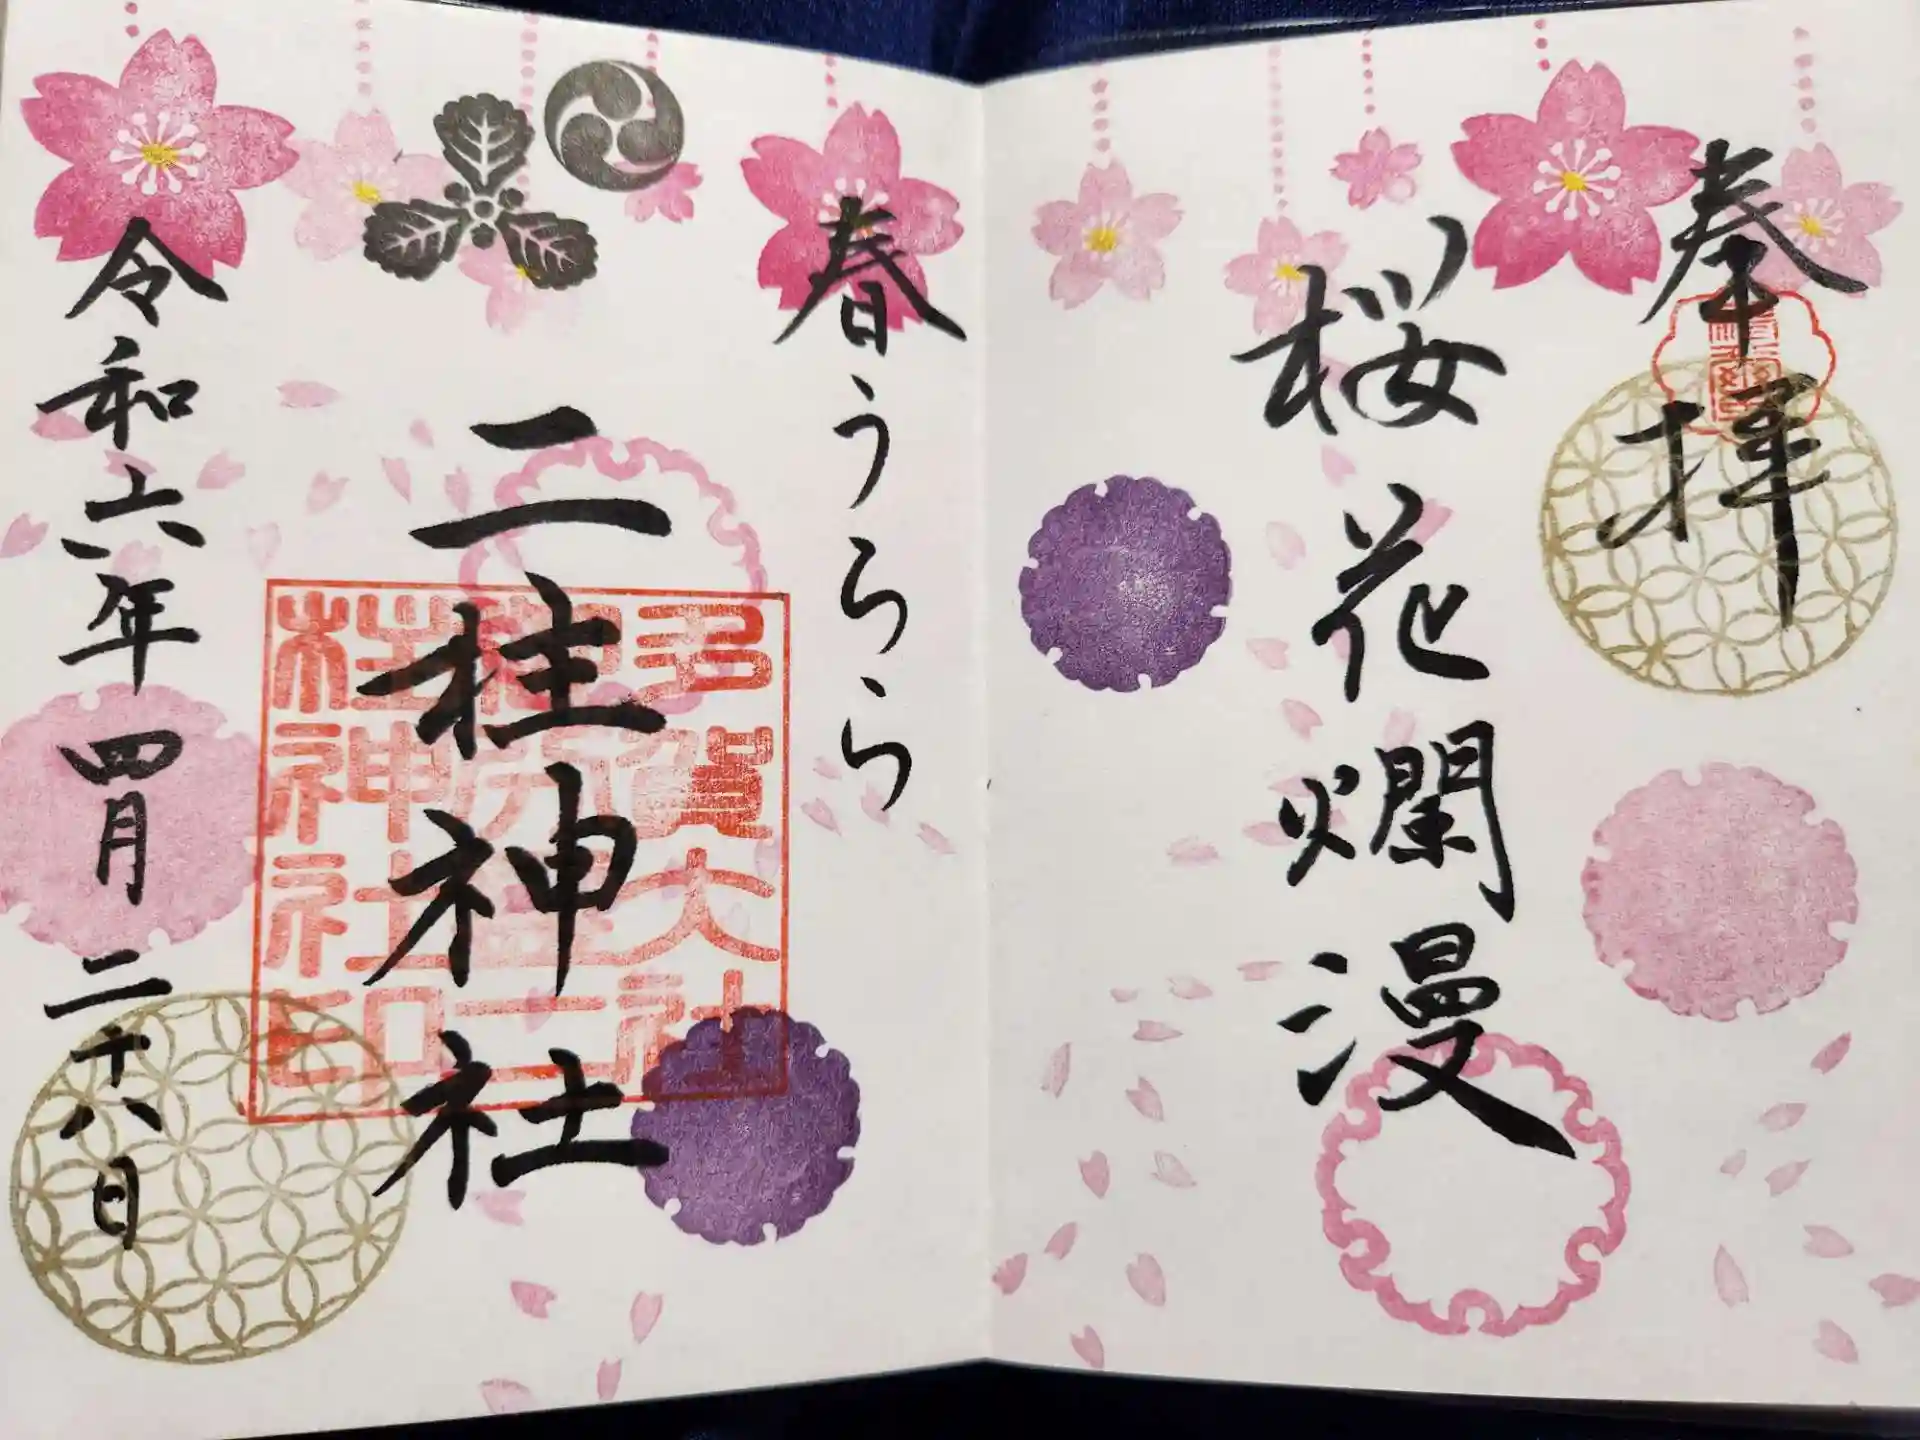 奉拝
桜花爛漫
春うらら
二柱神社
令和六年四月二十八日
多賀大社
御分霊二
柱神社印